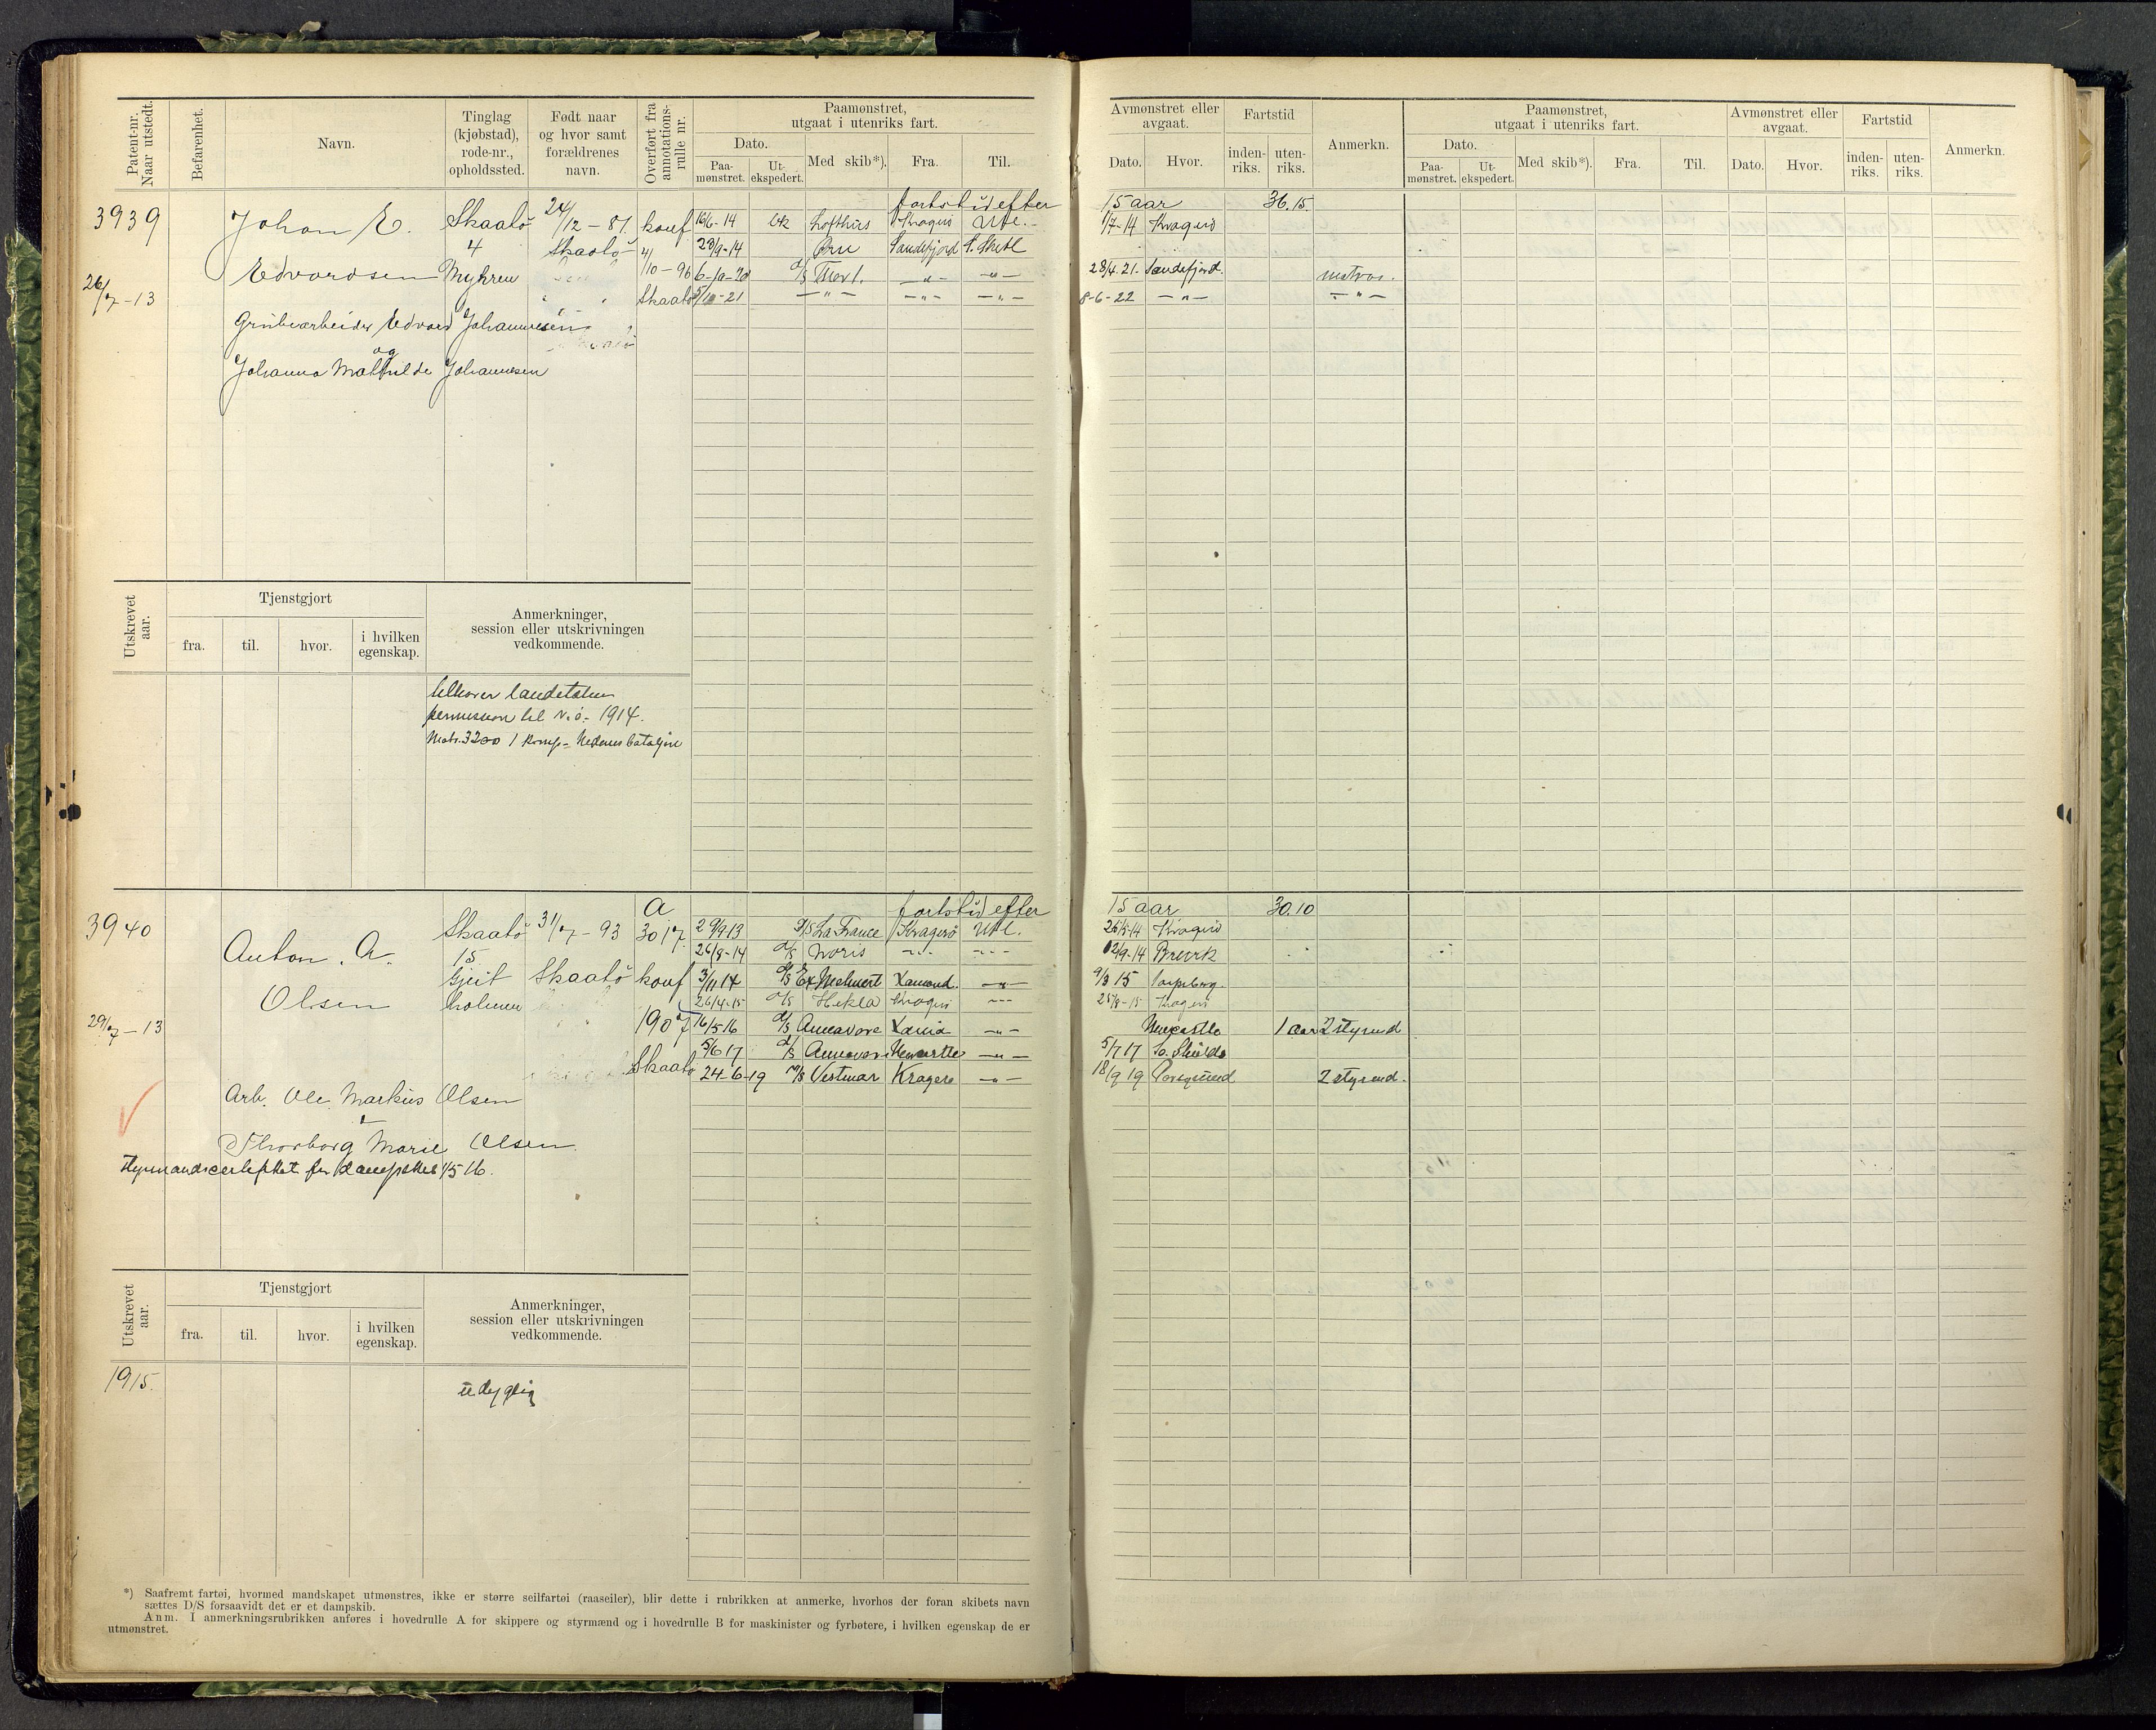 Patent-nr. Naar utstedt.
Befarenhet.
Navn.
Tinglag (kjøbstad), rode-nr., opholdssted.
Født naar og hvor samt forældrenes navn.
Overført fra annotations-rulle nr.
Paamønstret, utgaat i utenriks fart.
Dato.
Paa-mønstret.
Ut-ekspedert.
Med skib*).
Fra.
Til.
Avmønstret eller avgaat.
Dato.
Hvor.
Fartstid
inden-riks.
uten-riks.
Anmerkn.
Paamønstret, utgaat i utenriks fart.
Dato.
Paa-mønstret.
Ut-ekspedert.
Med skib*).
Fra.
Til.
Avmønstret eller avgaat.
Dato.
Hvor.
Fartstid
inden-riks.
uten-riks.
Anmerkn.
fartstid efter 15 aar 36.15.
3939 Johan E. Skaatö 24/12-87. konf 16/6-14 Lofthus Kragerö Utl. 1/7-14 Kragerö
4 Skaatö 4/ 28/9-14 Sandefjord
Edvardsen Myhren 10-96 6-10-20 - " - - " - 28/4.21. Sandefjord. matros.
26/7-13 Skaatö 5/10-21 - " - - " - - " - 8-6-22 - " - - " -
Grubearbeider Edvard Johannesen
og
Johanna Mathilde Johannesen
Utskrevet aar.
Tjenstgjort
fra.
til.
hvor.
i hvilken egenskap.
Anmerkninger, session eller utskrivningen vedkommende.
tilhører landetaten
permission til 1914.
Matr. 3200 1 komp- Nedenes bataljon
A fartstid efter 15 aar 30.10
3940 Skaatö 31/7-93 3017. 29/9 13 D/S La France Kragerö Utl. 26/5-14 Kragerö
Anton. A. 15 26/8-14 D/S Noris - " - - " - 12/9-14 Brevik
Gjeit Skaatö konf 3/11 14 D/S 9/3 15 Sarpsborg.
Olsen holmen 26/4-15 D/S Hekla Kragerö - " - 25/8-15 Kragerö
29/7-13 1907 16/5 16 D/S Annavore - " - Newcastle 1 aar 2 styrmd
5/6 17 D/S Annavore Newcastle - " - 5/7 17 So. Shields
Skaatö 24-6-19 M/S Vestmar Kragerø - " - 18/9 19 Porsgrund 2 styrmd.
Arb. Ole Markus Olsen
Thorborg Marie Olsen
Styrmandscertifikat for dampskib 1/5 16.
Utskrevet aar.
Tjenstgjort
fra.
til.
hvor.
i hvilken egenskap.
Anmerkninger, session eller utskrivningen vedkommende.
1915. udygtig
*) Saafremt fartøi, hvormed mandskapet utmønstres, ikke er større seilfartøi (raaseiler), blir dette i rubrikken at anmerke, hvorhos der foran skibets navn
sættes D/S forsaavidt det er et dampskib.
Anm. I anmerkningsrubrikken anføres i hovedrulle A for skippere og styrmænd og i hovedrulle B for maskinister og fyrbøtere, i hvilken egenskap de er
utmønstret.